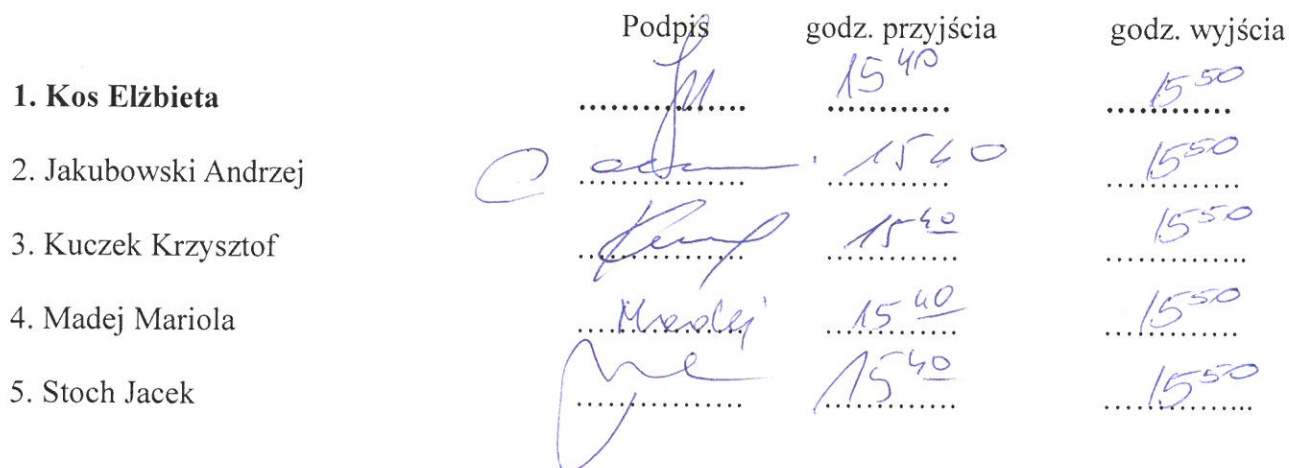 Podpis godz. przyjścia godz. wyjścia
1. Kos Elżbieta .................. 15 40 15 50
2. Jakubowski Andrzej .................. 15 40 15 50
3. Kuczek Krzysztof .................. 15 40 15 50
4. Madej Mariola Madej 15 40 15 50
5. Stoch Jacek .................. 15 40 15 50